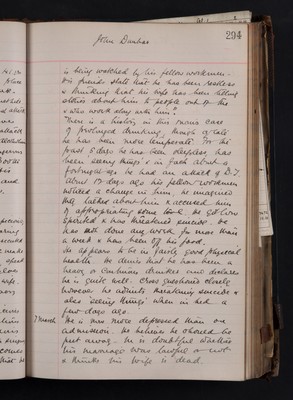 294
John Dunbar
is being watched by his fellow workmen.
His friends state that he has been restless
& thinking that his wife has been telling
stories about him to people out of the
& was work along with him?
There is a history in this man's case
of prolonged drinking, though of late
he has been more temperate. For the
past 8 days he has been sleepless, has
been seeing things & in fact about a
fortnight ago he had an attack of D.T.
About 10 days ago his fellow workmen
noticed a change in him, he imagined
they talked about him & accused him
of appropriating some He got low
spirited & has threatened suicide. He
has not done any work for more than
a week & has been off his food.
He appears to be in fairly good physical
health. He denies that he has been a
heavy or continuous drinker and declares
he is quite well. Cross questioned closely
however he admits threatening suicide &
also seeing things when in bed a
few days ago.
7 March He is more depressed than on
admission. He believes he should be
put away. He is doubtful whether
his marriage was lawful or not
& thinks his wife is dead.